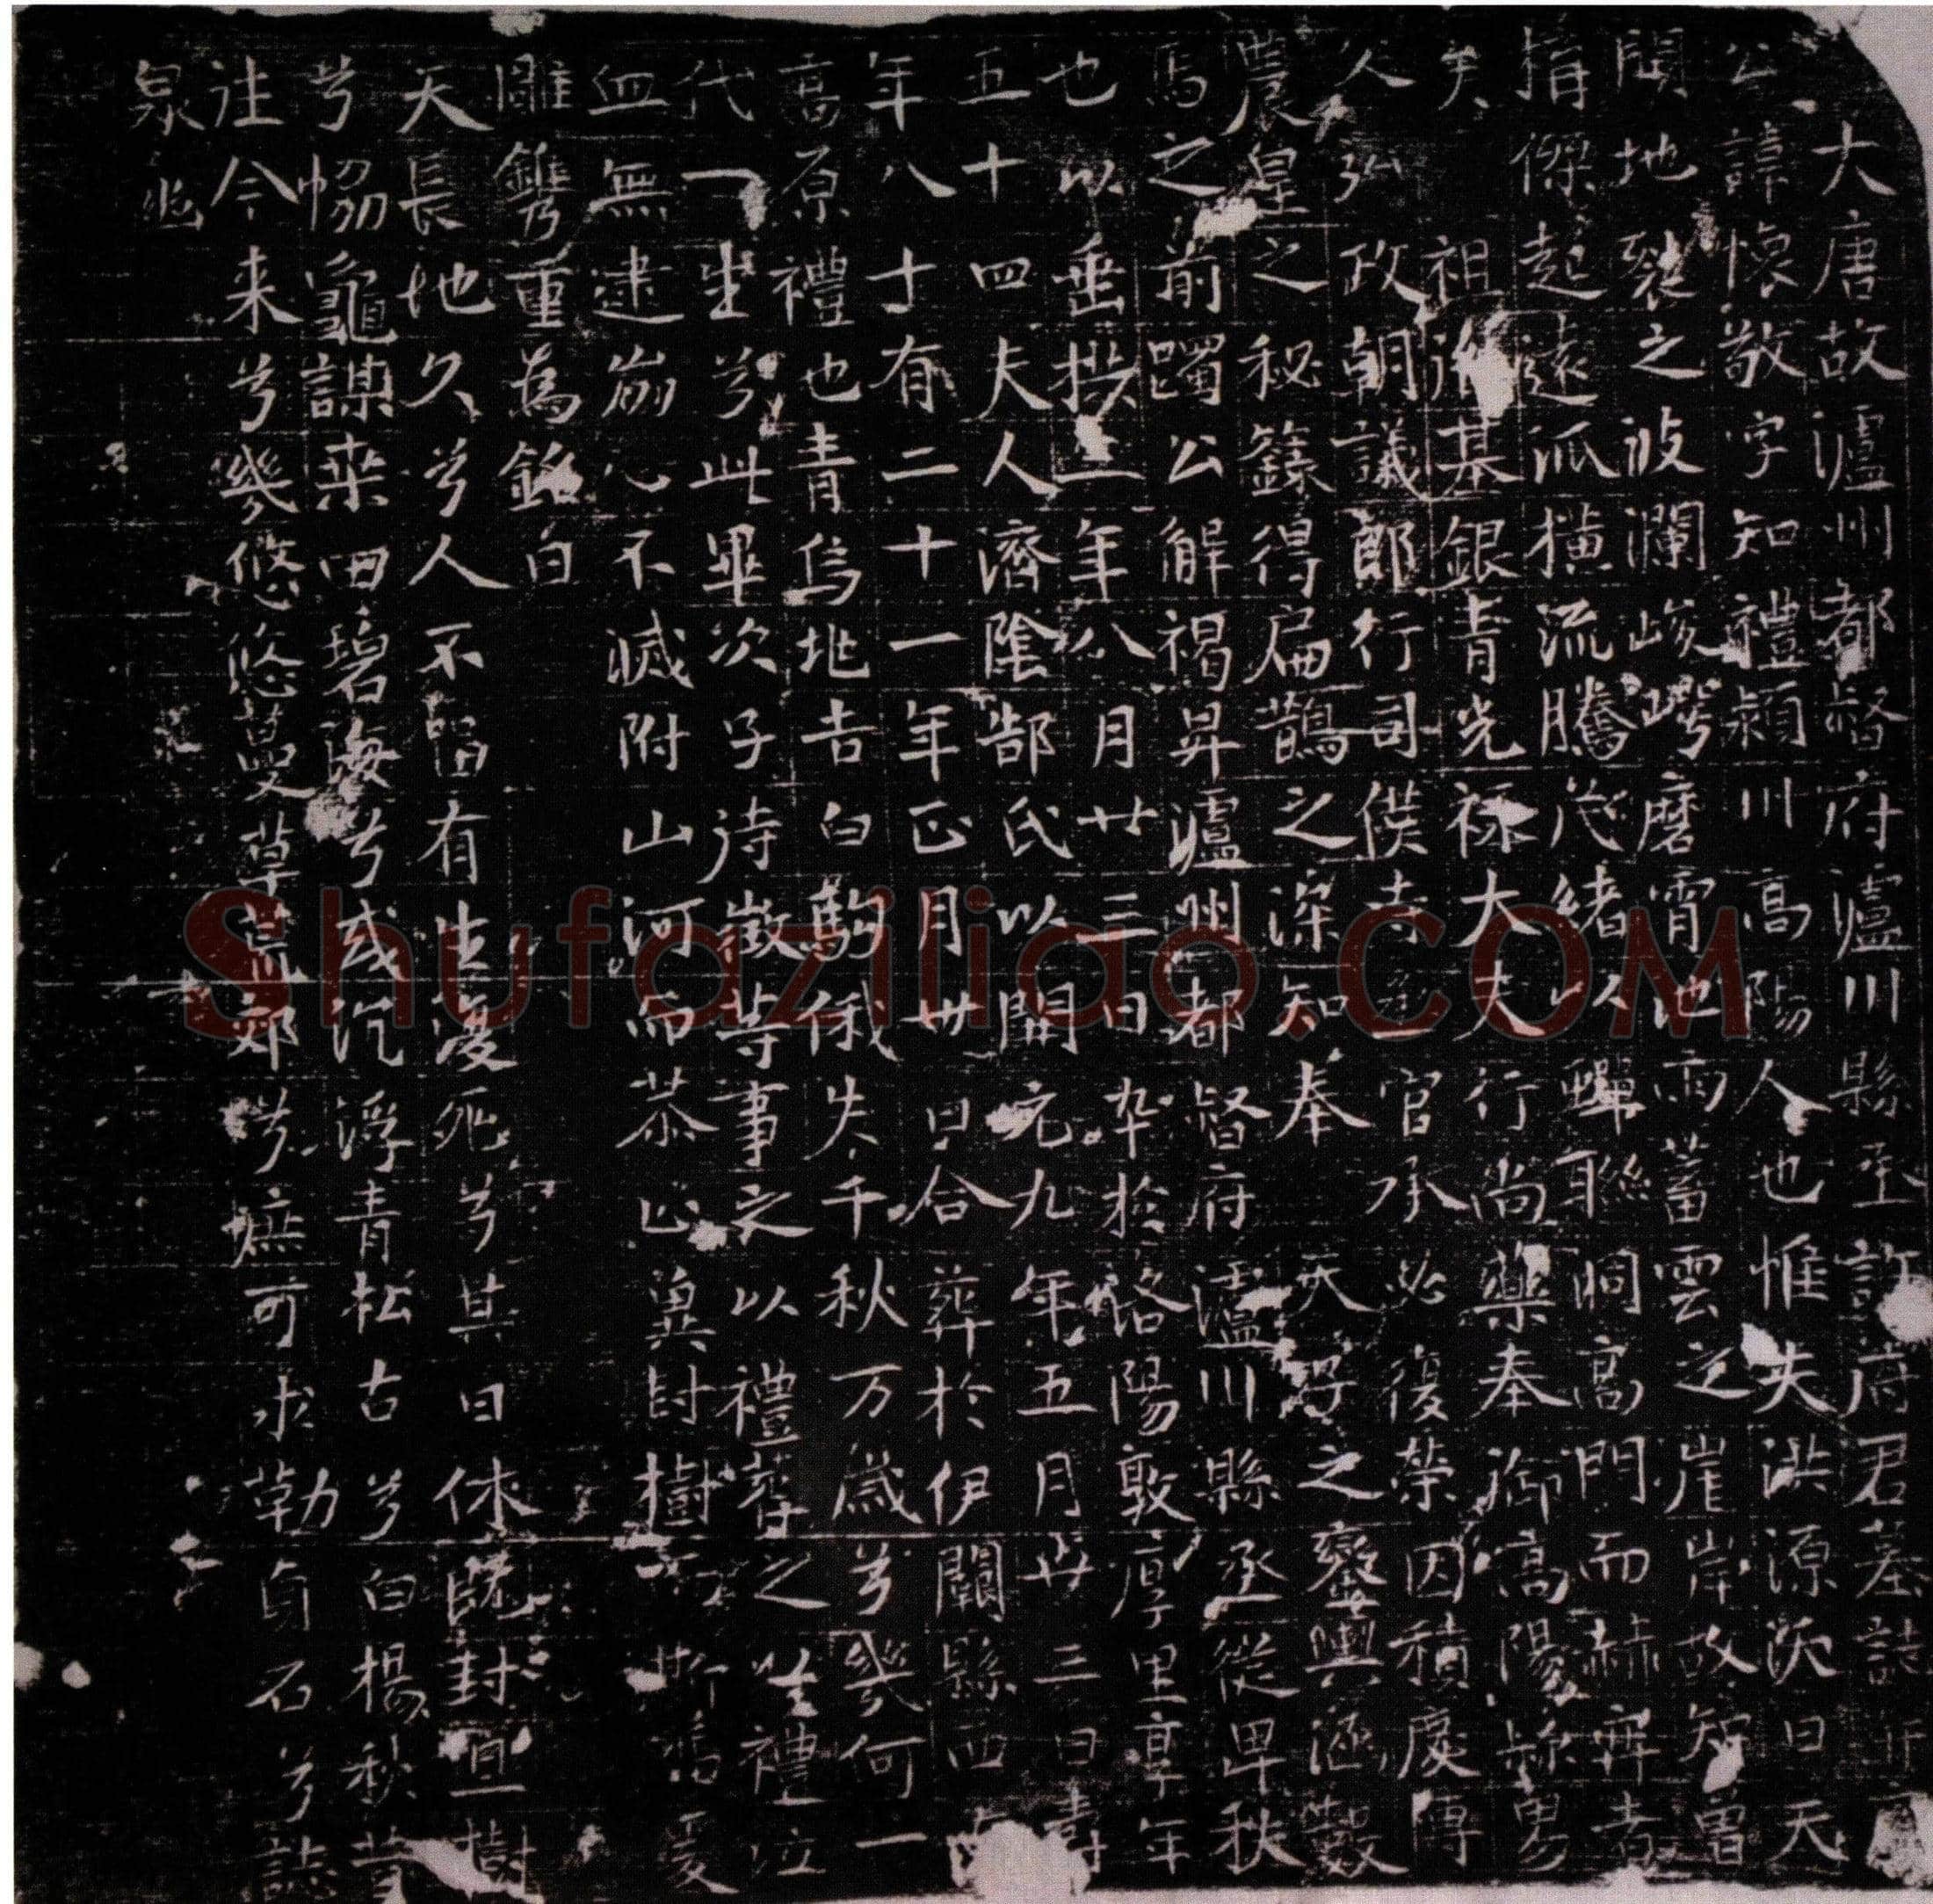 大唐故瀘州都督府瀘川縣丞許府君墓誌
公諱懷敬字知禮潁川高陽人也惟夫洪源沃日天
開地裂之波瀾峻崿磨霄泄雨蓄雲之崖岸故智
揖傑起遠派橫流騰茂緒以蟬聯洞高門而赫弈者
矣 祖胤基銀青光祿大夫行尚藥奉御高陽縣男
人弘政朝議郎行司僕寺丞官承必復榮因積慶傳
農皇之秘籙得扁鵲之深知奉 天子之鑾輿涵
馬之前躅公解褐昇瀘州都督府瀘川縣丞從班秩
也以垂拱二年八月廿三日卒於洛陽敦厚里享年
五十四夫人濟陰郜氏以開元九年五月廿三日壽
年八十有二十一年正月廿日合葬於伊闕縣西
高原禮也青烏地吉白駒俄失千秋万歲兮幾何一
代一生兮此畢次子待徵等事之以禮葬之以禮泣
血無逮崩心不滅附山河而恭 冀封樹 斯 爰
雕鐫重為銘曰
天長地久兮人不留有生復死兮其日休既封且樹
兮協龜謀桒田碧海兮或沉浮青松古兮白楊秋昔
往今来兮幾悠悠蔓草荒郊兮庶可求勒貞石兮誌
泉幽
Shufaziliao.COM